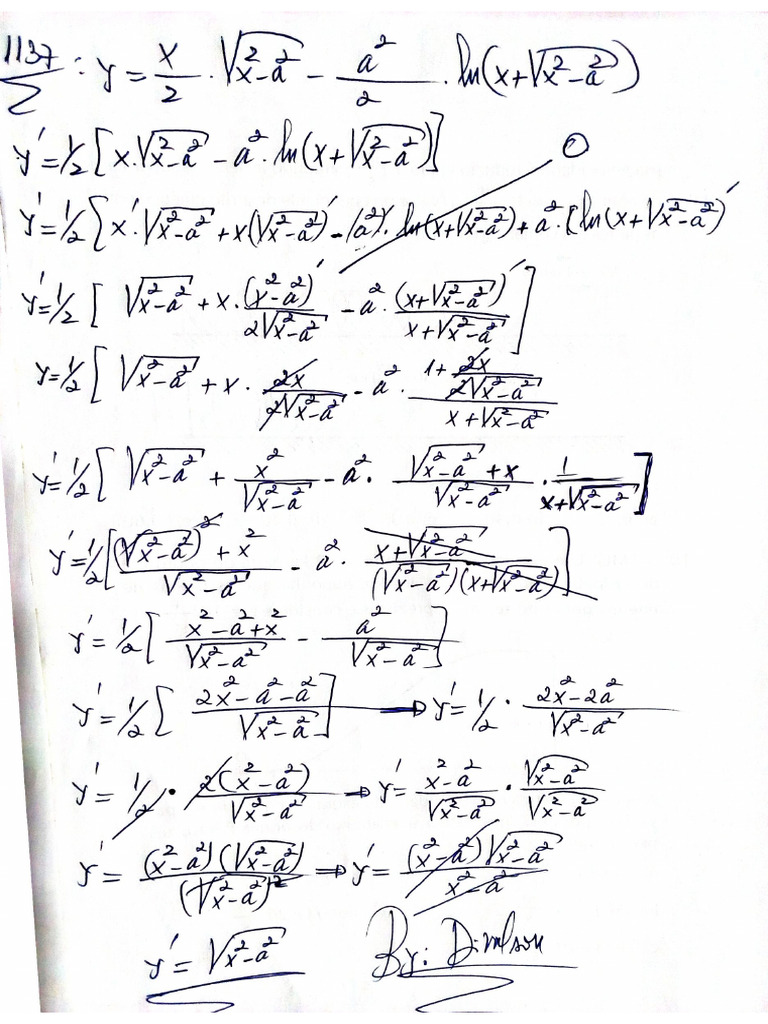 1137: y = x/2 · √(x²-a²) - a²/2 · ln(x+√(x²-a²))
y' = 1/2 [x·√(x²-a²) - a²·ln(x+√(x²-a²))]
0
y' = 1/2 [x'·√(x²-a²) + x(√(x²-a²))' - (a²)'·ln(x+√(x²-a²)) + a²·[ln(x+√(x²-a²))'
y' = 1/2 [√(x²-a²) + x·(x²-a²)'/(2√(x²-a²)) - a²·(x+√(x²-a²))'/(x+√(x²-a²))]
y = 1/2 [√(x²-a²) + x · 2x/(2√(x²-a²)) - a² · (1+2x/(2√(x²-a²)))/(x+√(x²-a²))
y' = 1/2 [√(x²-a²) + x²/√(x²-a²) - a² · (√(x²-a²)+x)/√(x²-a²) · 1/(x+√(x²-a²))]
y' = 1/2 [((√(x²-a²))² + x²)/√(x²-a²) - a² · (x+√(x²-a²))/((√(x²-a²))(x+√(x²-a²)))]
y' = 1/2 [(x²-a²+x²)/√(x²-a²) - a²/√(x²-a²)]
y' = 1/2 [(2x²-a²-a²)/√(x²-a²)] → y' = 1/2 · (2x²-2a²)/√(x²-a²)
y' = 1/2 · 2(x²-a²)/√(x²-a²) → y' = (x²-a²)/√(x²-a²) · √(x²-a²)/√(x²-a²)
y' = (x²-a²)(√(x²-a²))/(√(x²-a²))² ⇒ y' = (x²-a²)√(x²-a²)/(x²-a²)
y' = √(x²-a²) By: